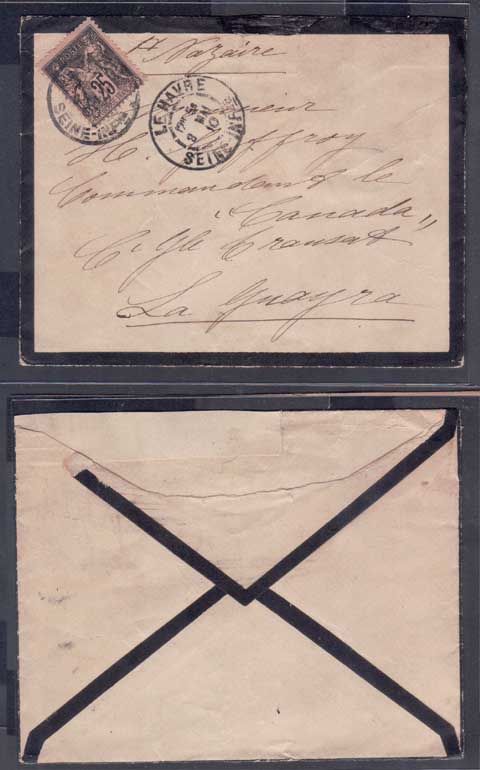 St Nazaire
25
SEINE-INF
LE HAVRE
8 MAI
10
SEINE-INFRE
Monsieur
H. Geffroy
Commandant le
"Canada"
Cie Gle Transat
La Guayra